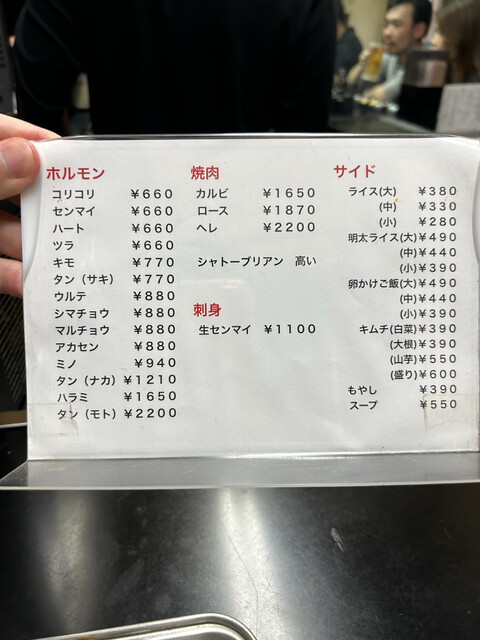 ホルモン
コリコリ ¥660
センマイ ¥660
ハート ¥660
ツラ ¥660
キモ ¥770
タン（サキ） ¥770
ウルテ ¥880
シマチョウ ¥880
マルチョウ ¥880
アカセン ¥880
ミノ ¥940
タン（ナカ） ¥1210
ハラミ ¥1650
タン（モト） ¥2200
焼肉
カルビ ¥1650
ロース ¥1870
ヘレ ¥2200
シャトーブリアン 高い
刺身
生センマイ ¥1100
サイド
ライス(大) ¥380
(中) ¥330
(小) ¥280
明太ライス(大)¥490
(中)¥440
(小)¥390
卵かけご飯(大)¥490
(中)¥440
(小)¥390
キムチ(白菜)¥390
(大根)¥390
(山芋)¥550
(盛り)¥600
もやし ¥390
スープ ¥550